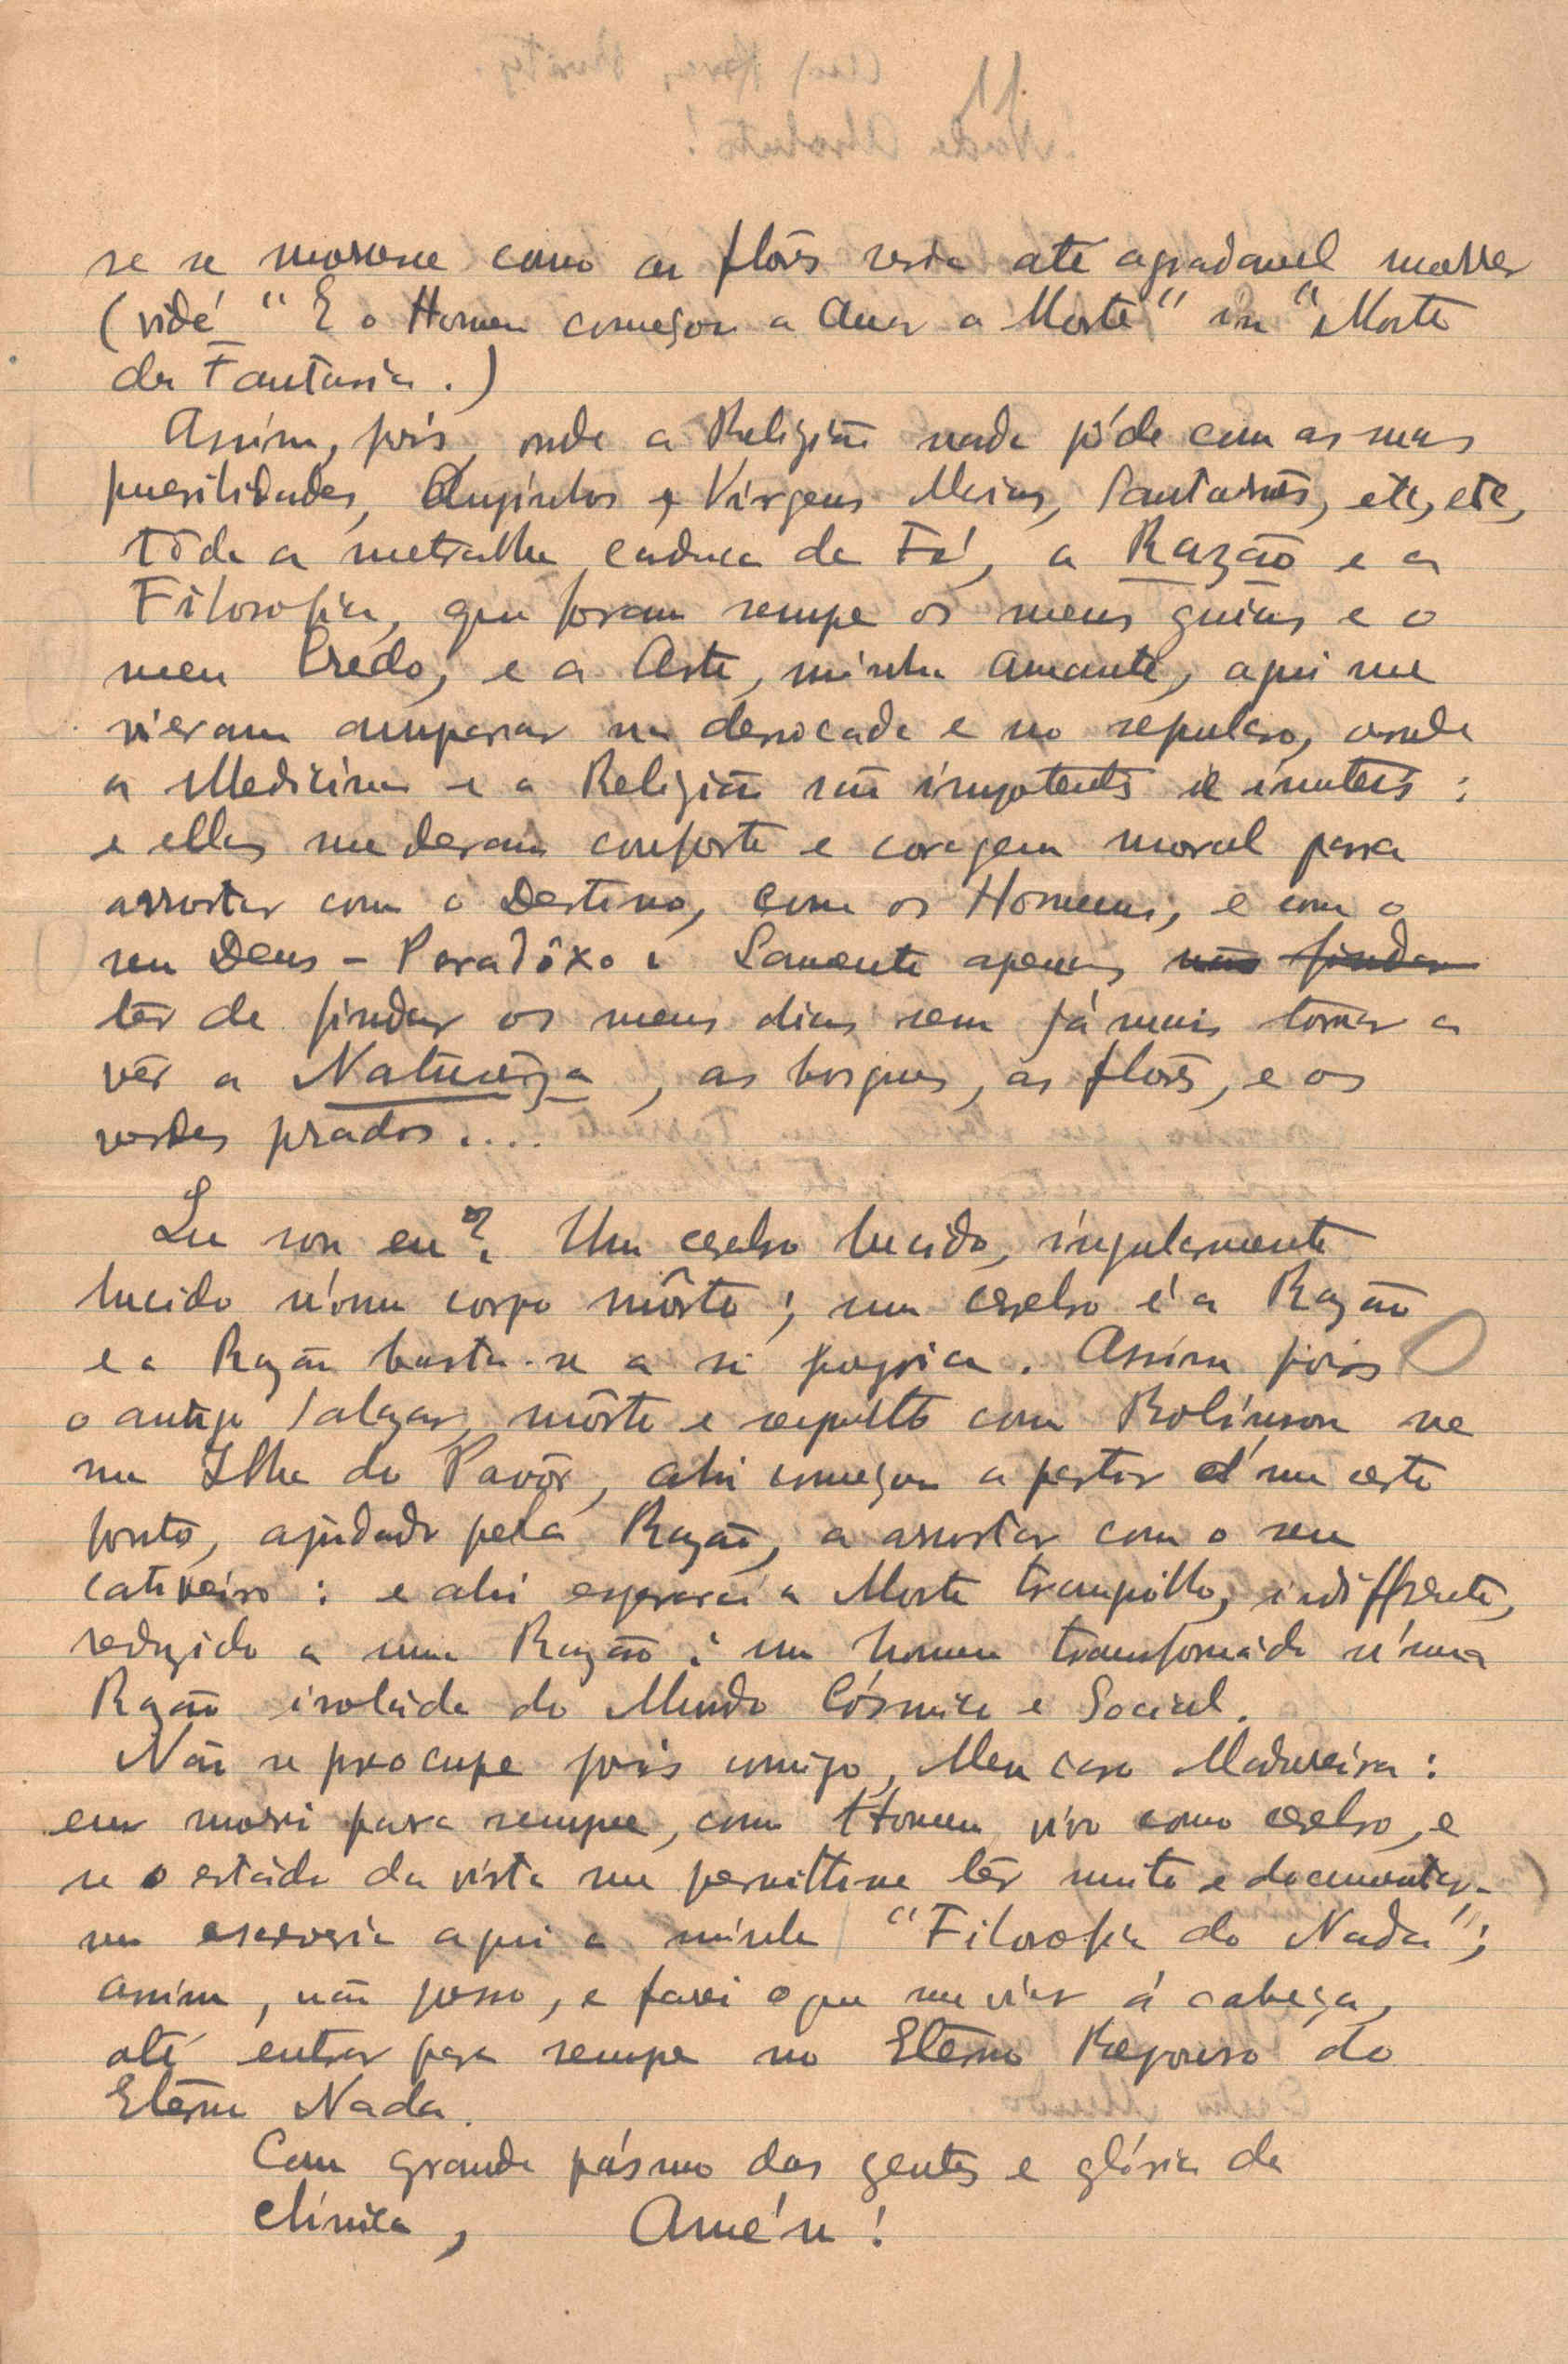 se se morresse como as flôres seria até agradavel morrer
(vidé "E o Homem começou a Amar a Morte" in "Morte
da Fantasia.)
Assim, pois, onde a Religião nada póde com as suas
puerilidades, Anjinhos e Virgens Marias, etc, etc,
tôda a metralha caduca da Fé, a Razão e a
Filosofia, que foram sempre os meus guias e o
meu Credo, e a Arte, minha amante, aqui me
vieram amparar na derrocada e no sepulcro, onde
a Medicina e a Religião são impotentes e inuteis:
e ellas me deram conforto e coragem moral para
arrostar com o Destino, com os Homens, e com o
seu Deus - Paradôxo: Somente apenas não findar
têr de findar os meus dias sem jámais tornar a
vêr a Naturêza, as bosques, as flôres, e os
verdes prados....
Eu sou eu? Um cerebro lucido, singularmente
lucido n'um corpo môrto; um cerebro é a Razão
e a Razão basta-se a si propria. Assim pois
o antigo Salazar, môrto e sepulto com Robinson
na Ilha do Pavôr, ahi começou a partir d'um certo
ponto, ajudado pela Razão, a arrostar com o seu
cativeiro: e ahi esperará a Morte tranquillo, indifferente,
reduzido a uma Razão: um homem transformádo n'uma
Razão isoláda do Mundo Cósmico e Social.
Não se preocupe pois comigo, Meu caro Madureira:
eu morri para sempre, como Homem vivo como cerebro, e
se o estádo da vista me permittisse lêr muito e documentar-
me escreveria aqui a minha "Filosofia do Nada";
assim, não posso, e farei o que me vier á cabeça,
até entrar para sempre no Etêrno Repouso do
Etêrno Nada.
Com grande pásmo das gentes e glória da
clínica, Amén!